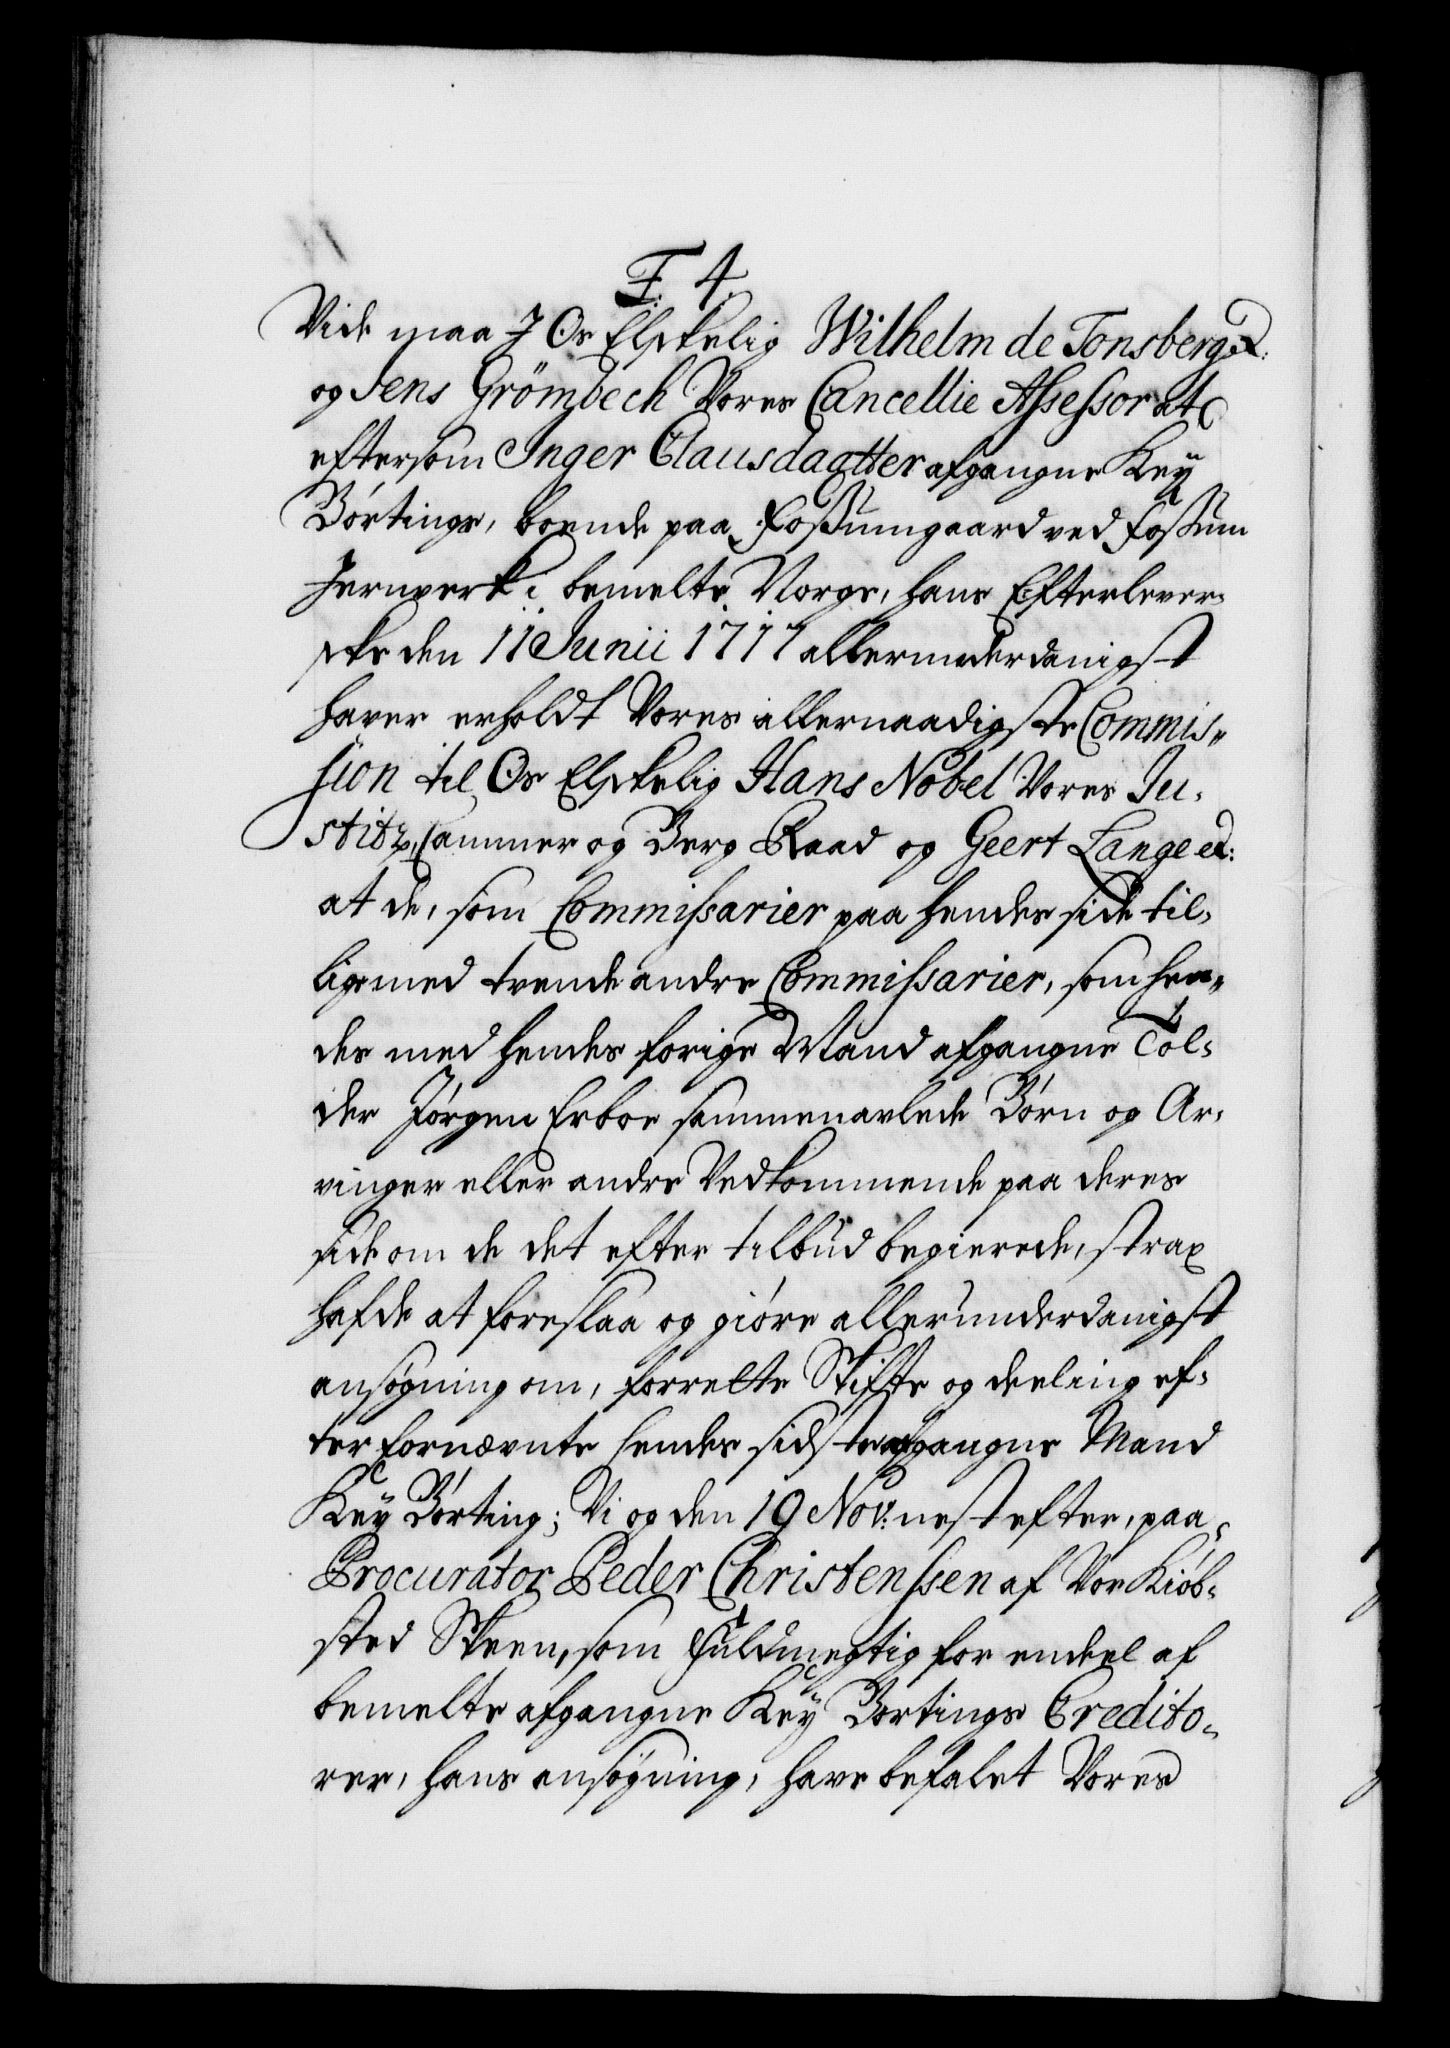 F. 4.
Vide maa I Os Elskelig Wilhelm de Tonsberg &:
og Jens Grömbech Vores Cancellie Assessor at
eftersom Inger Clausdaatter afgangne Key
Börtings, boende paa Fossumgaard ved Fossum
Jernverk i bemelte Norge, hans Efterlever-
ske den 11 Junii 1717 allerunderdanigst
haver erholdt Vores allernaadigste Commis-
sion til Os Elskelig Hans Nobel Vores Ju-
stitz, Cammer og Berg Raad og Geert Lange &:
at de, som Commissarier paa hendes side til-
ligemed tvende andre Commissarier, som hen-
des med hendes forige Mand afgangne Tol-
der Jörgen Erboe sammenavlede Börn og Ar-
vinger eller andre Vedkommende paa deres
side om de det efter tilbud begierede, strax
hafde at foreslaa og giöre allerunderdanigst
ansögning om, forrette Skifte og deeling ef-
ter fornævnte hendes sidste afgangne Mand
Key Börting; Vi og den 19 Nov: nest efter, paa
Procurator Peder Christenssen af Vor Kiöb-
sted Skeen, som Fuldmegtig for endeel af
bemelte afgangne Key Börtings Credito-
rer, hans ansögning, have befalet Vores